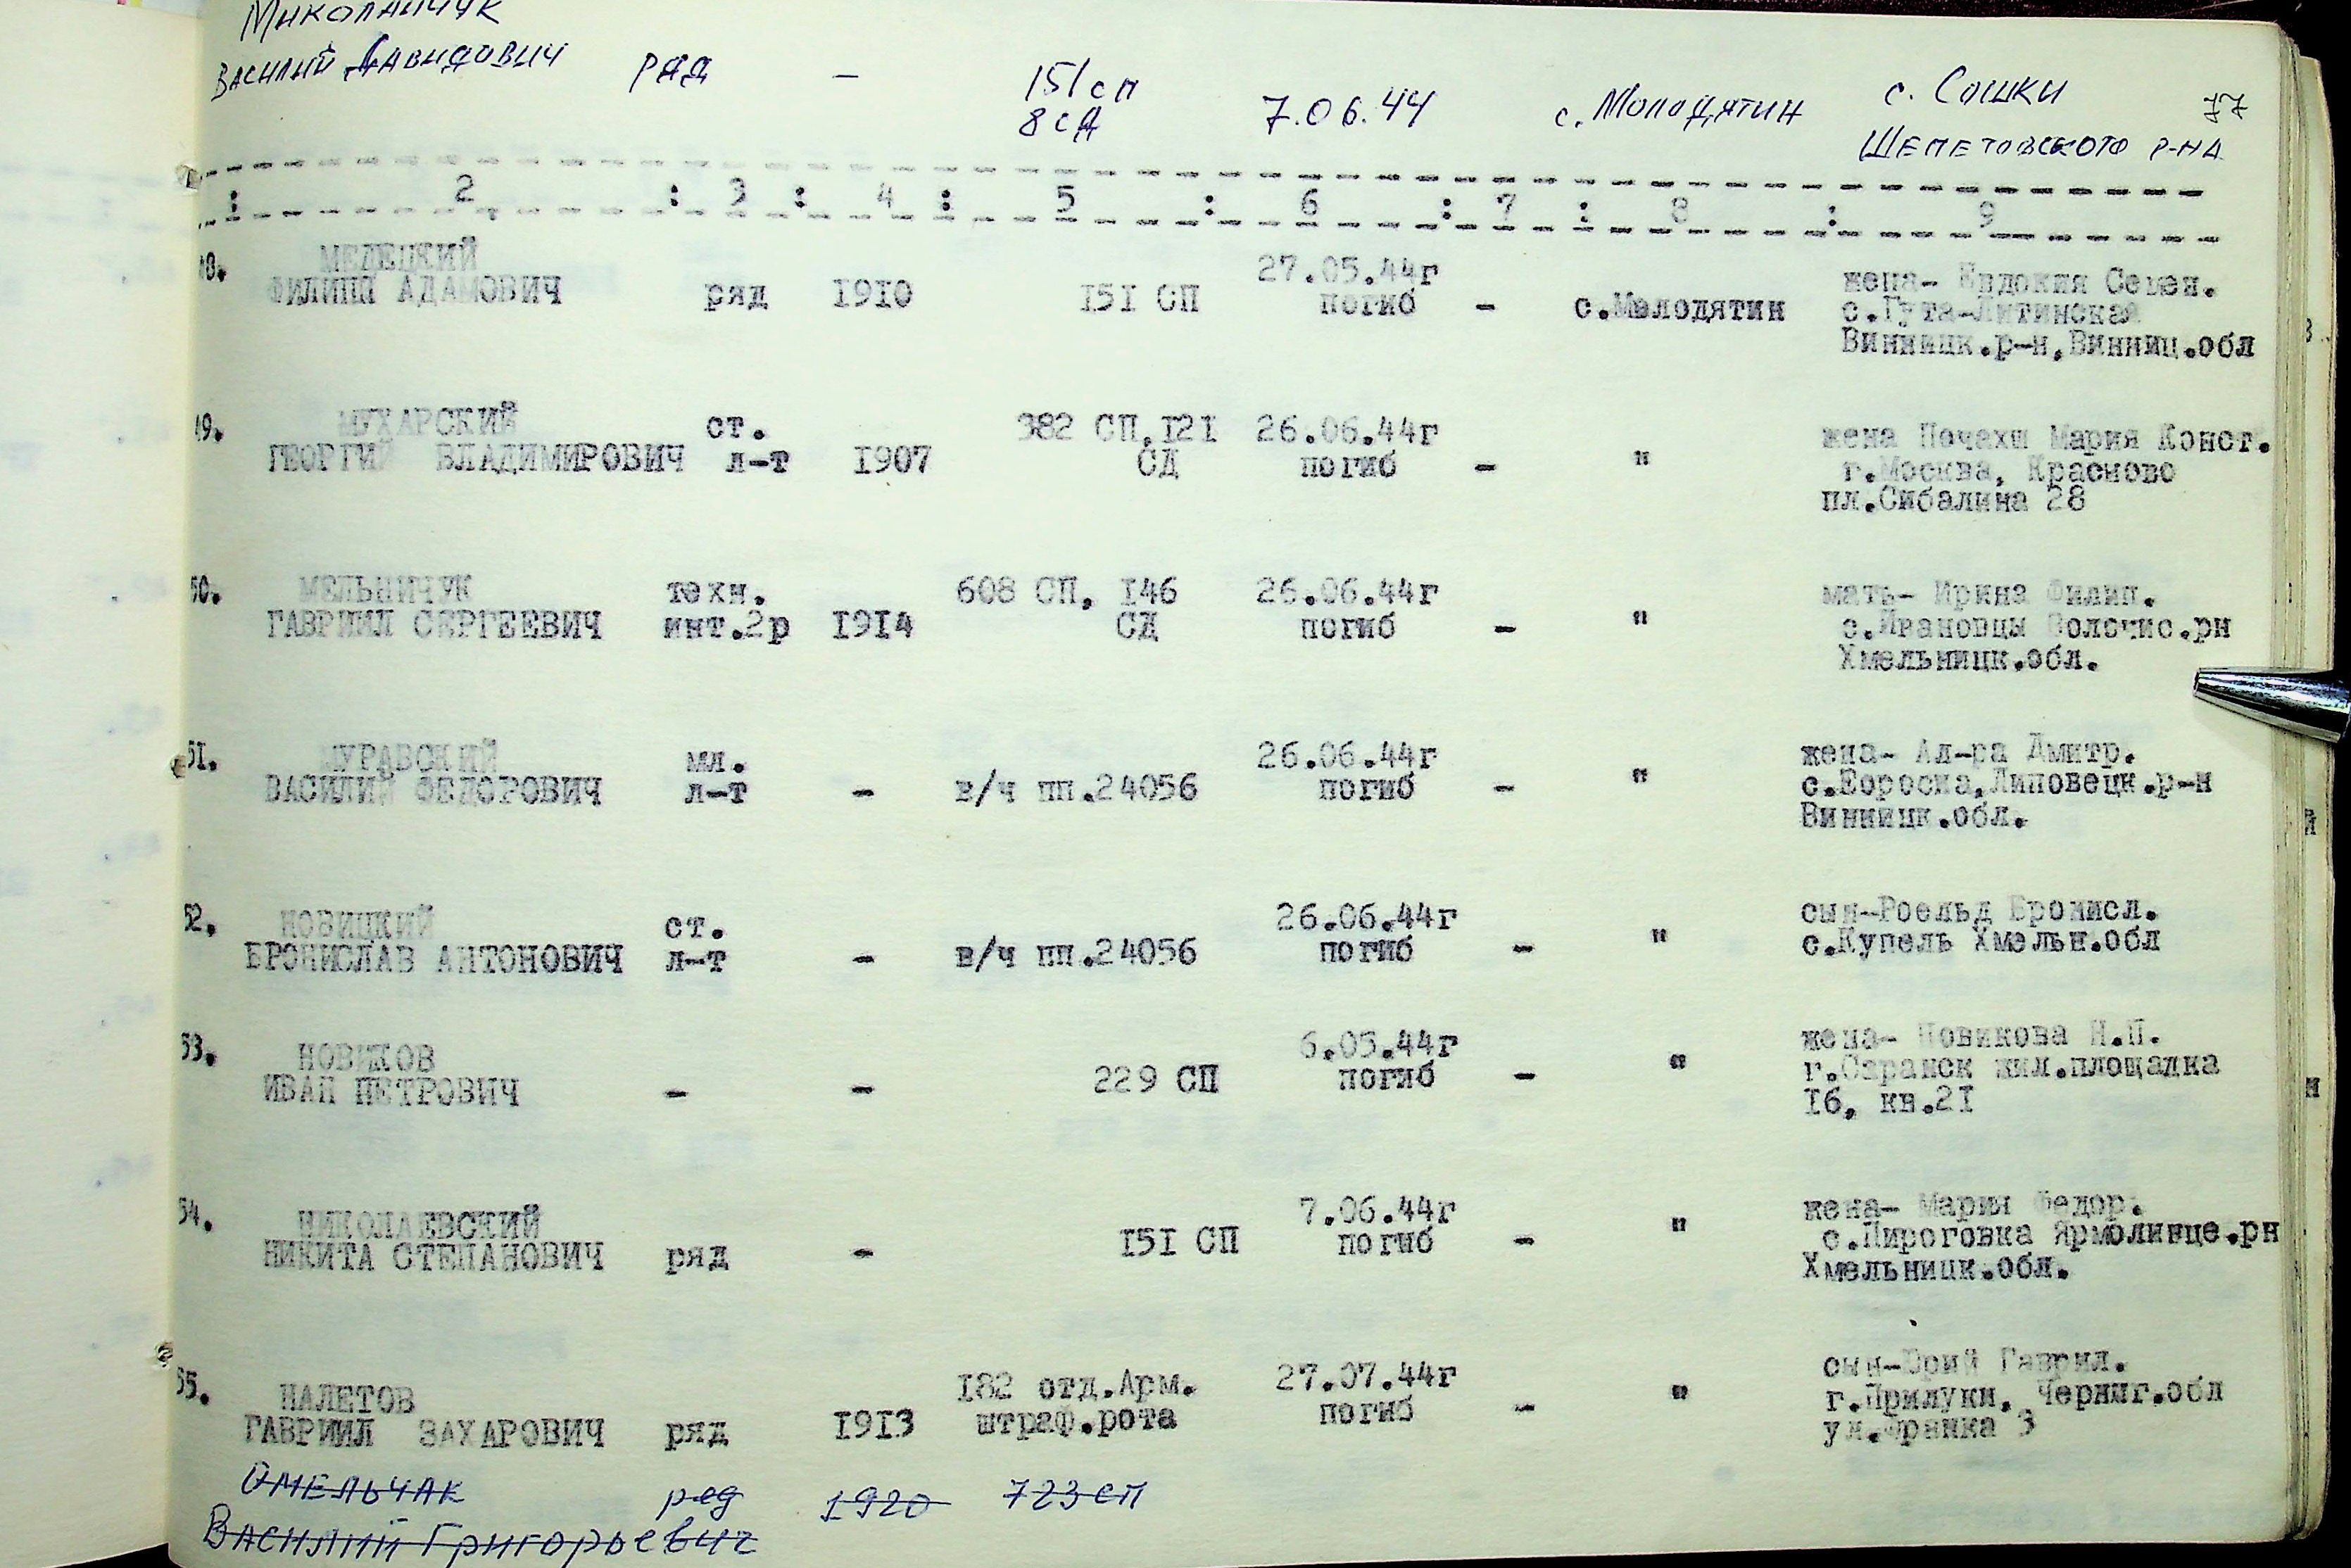 Миколайчук
Василий Давидович ряд - 151 сп 7.06.44 с. Молодятин с. Сошки 77
8 сд Шепетовского р-на
: 2 : 3 : 4 : 5 : 6 : 7 : 8 : 9
48. МЕЛЕЦКИЙ 27.05.44г жена- Евдокия Семен.
ФИЛИПП АДАМОВИЧ ряд 1910 151 СП погиб - с.Молодятин с.Гута-Литинская
Винницк.р-н,Винниц.обл
49. МУХАРСКИЙ ст. 382 СП,121 26.06.44г жена Мария Конст.
ГЕОРГИЙ ВЛАДИМИРОВИЧ л-т 1907 СД погиб - " г.Москва, Красново
пл.Сибалина 28
50. МЕЛЬНИЧУК техн. 608 СП, 146 26.06.44г мать- Ирина Филип.
ГАВРИИЛ СЕРГЕЕВИЧ инт.2р 1914 СД погиб - " с.Ивановцы Волочис.рн
Хмельницк.обл.
51. МУРАВСКИЙ мл. 26.06.44г жена- Ал-ра Дмитр.
ВАСИЛИЙ ФЕДОРОВИЧ л-т - в/ч пп.24056 погиб - " Липовецк.р-н
Винницк.обл.
52. НОВИЦКИЙ ст. 26.06.44г сын-Роельд Бронисл.
БРОНИСЛАВ АНТОНОВИЧ л-т - в/ч пп.24056 погиб - " с.Купель Хмельн.обл
53. НОВИКОВ 6.05.44г жена- Новикова Н.П.
ИВАН ПЕТРОВИЧ - - 229 СП погиб - " г.Саранск жил.площадка
16, кв.21
54. НИКОЛАЕВСКИЙ 7.06.44г жена- Мария Федор.
НИКИТА СТЕПАНОВИЧ ряд - 151 СП погиб - " с.Пироговка Ярмолинце.рн
Хмельницк.обл.
55. НАЛЕТОВ 182 отд.Арм. 27.07.44г сын-Юрий Гаврил.
ГАВРИИЛ ЗАХАРОВИЧ ряд 1913 штраф.рота погиб - " г.Прилуки, Черниг.обл
ул.Франка 3
Омельчак ряд 1920 723 сп
Василий Григорьевич